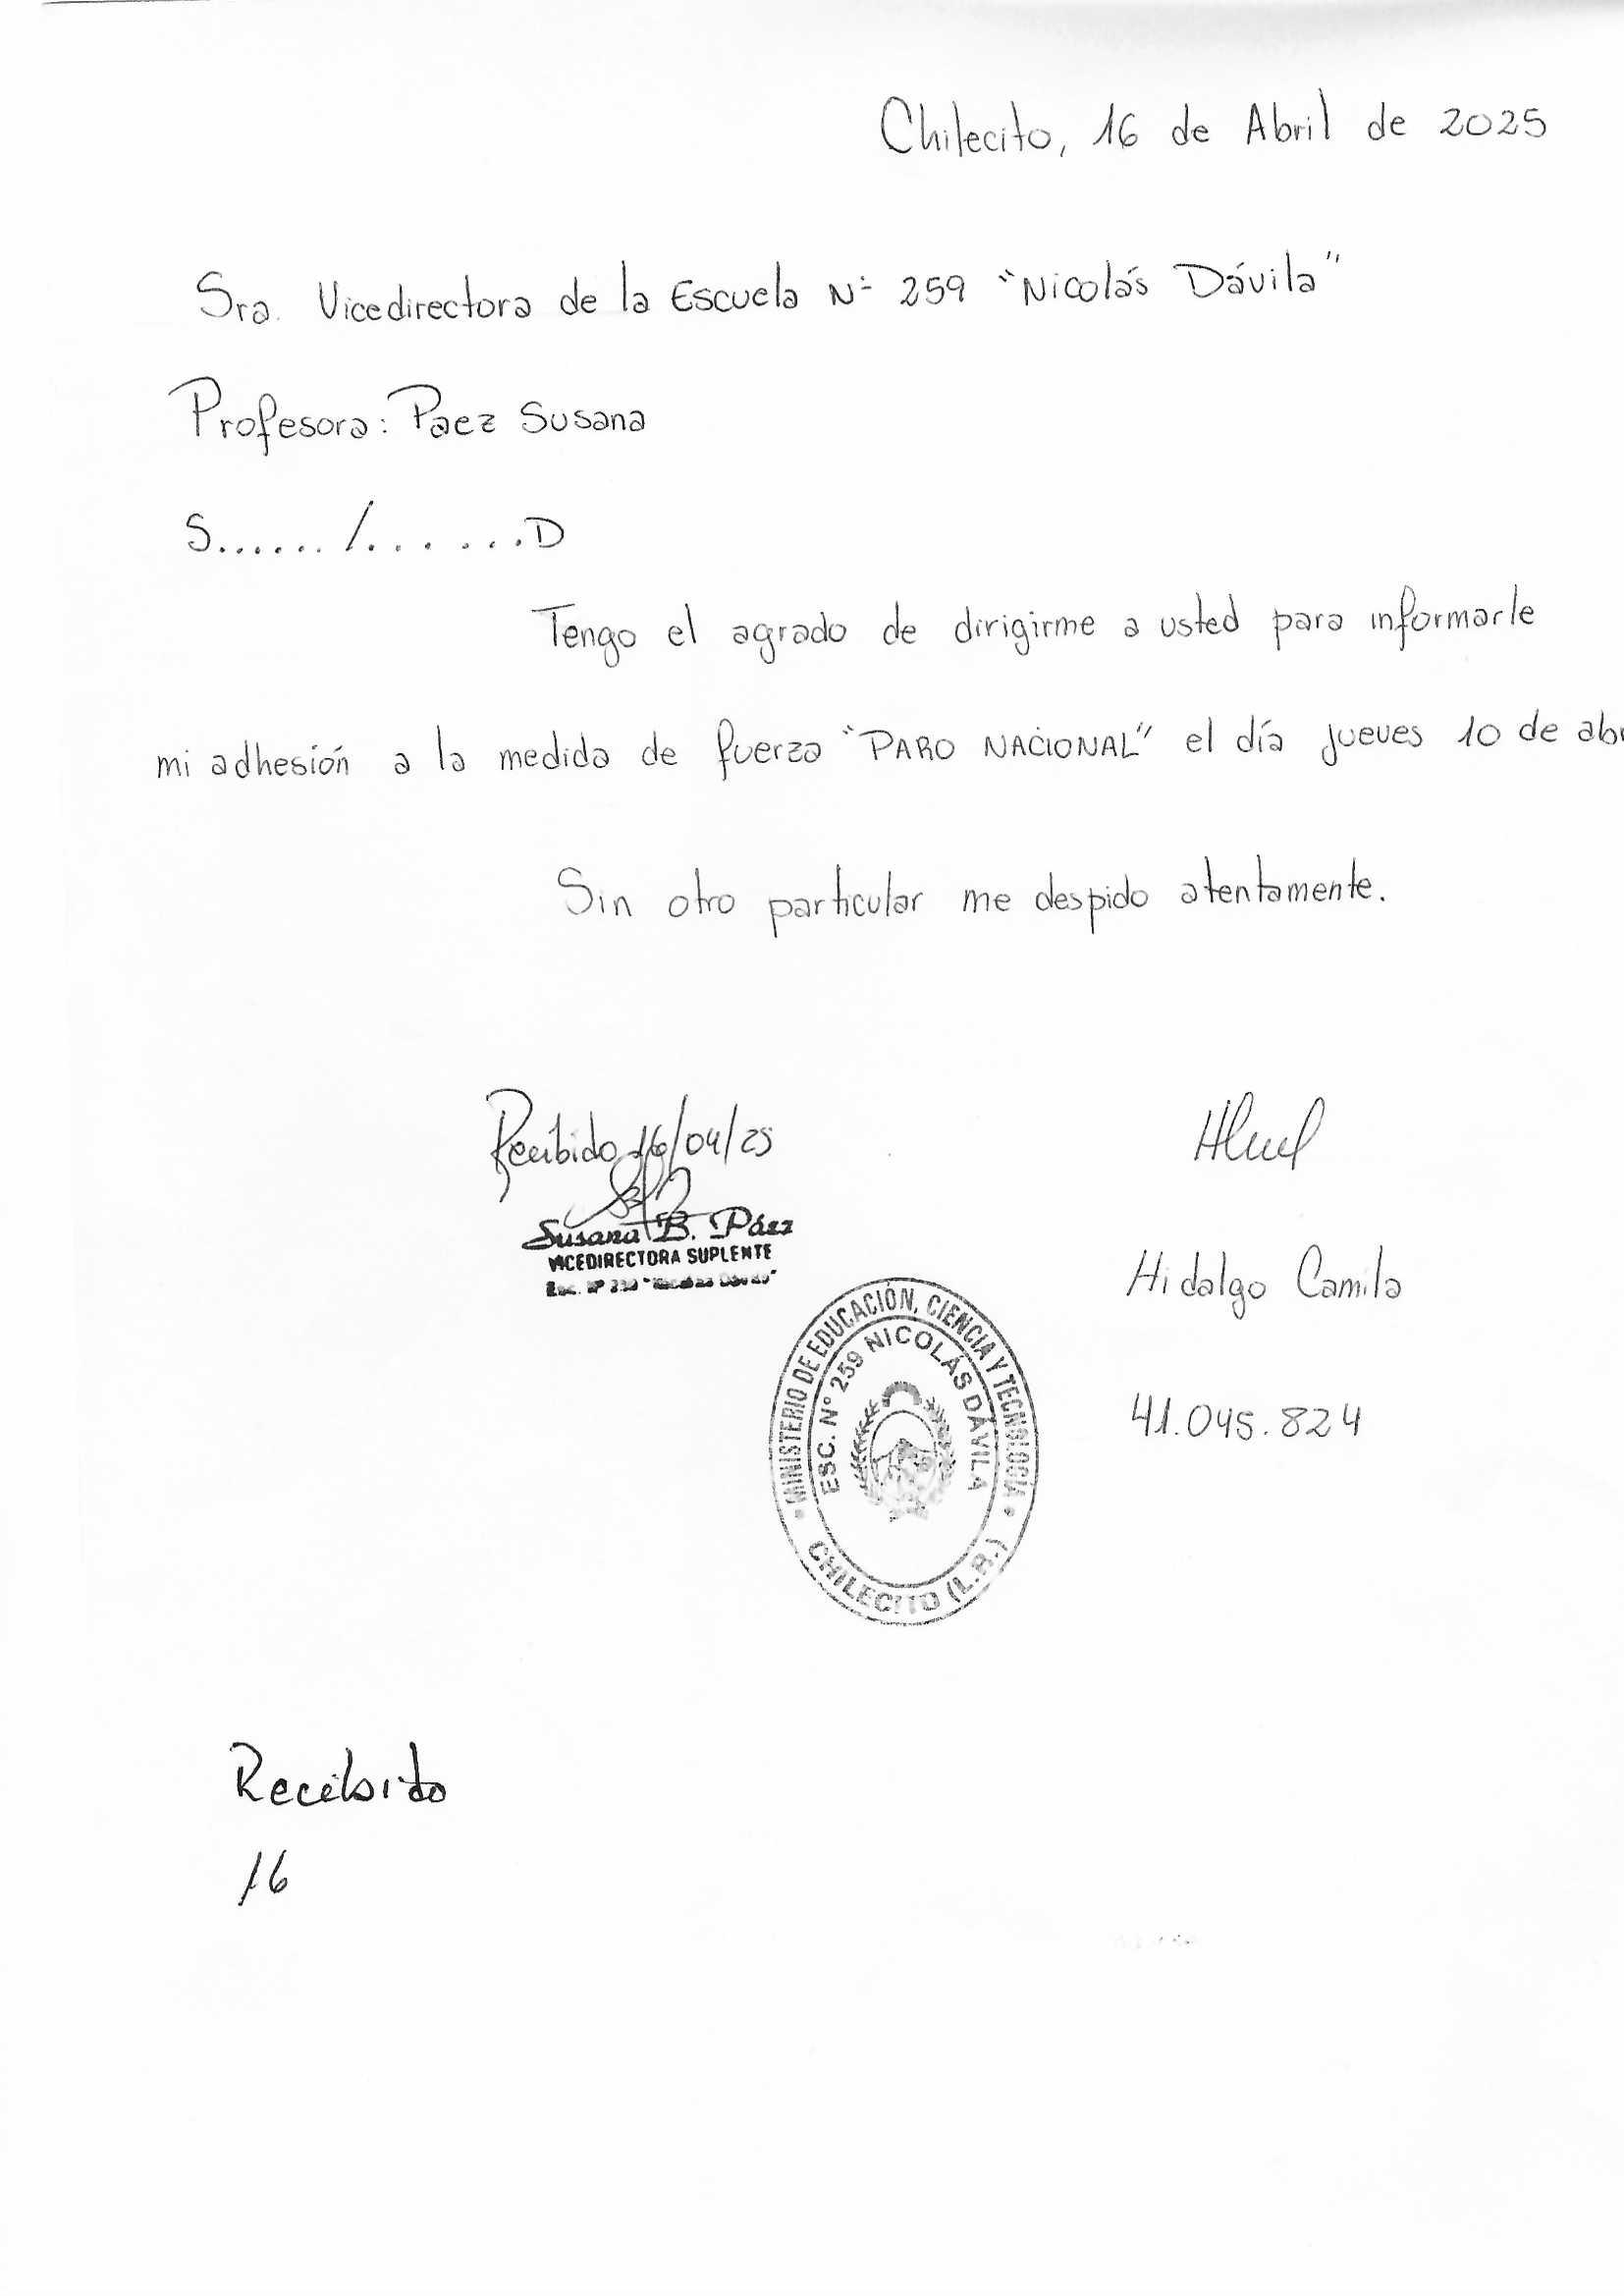 Chilecito, 16 de Abril de 2025
Sra. Vicedirectora de la Escuela N° 259 "Nicolás Dávila"
Profesora: Paez Susana
S....../.......D
Tengo el agrado de dirigirme a usted para informarle
mi adhesión a la medida de fuerza "PARO NACIONAL" el día jueves 10 de abr
Sin otro particular me despido atentamente.
Recibido 16/04/25
Susana B. Páez
VICEDIRECTORA SUPLENTE
Esc. Nº 259 "Nicolás Dávila"
Hidalgo Camila
41.045.824
MINISTERIO DE EDUCACIÓN, CIENCIA Y TECNOLOGÍA
ESC. N° 259 NICOLÁS DÁVILA
CHILECITO (L.R.)
Recibido
16